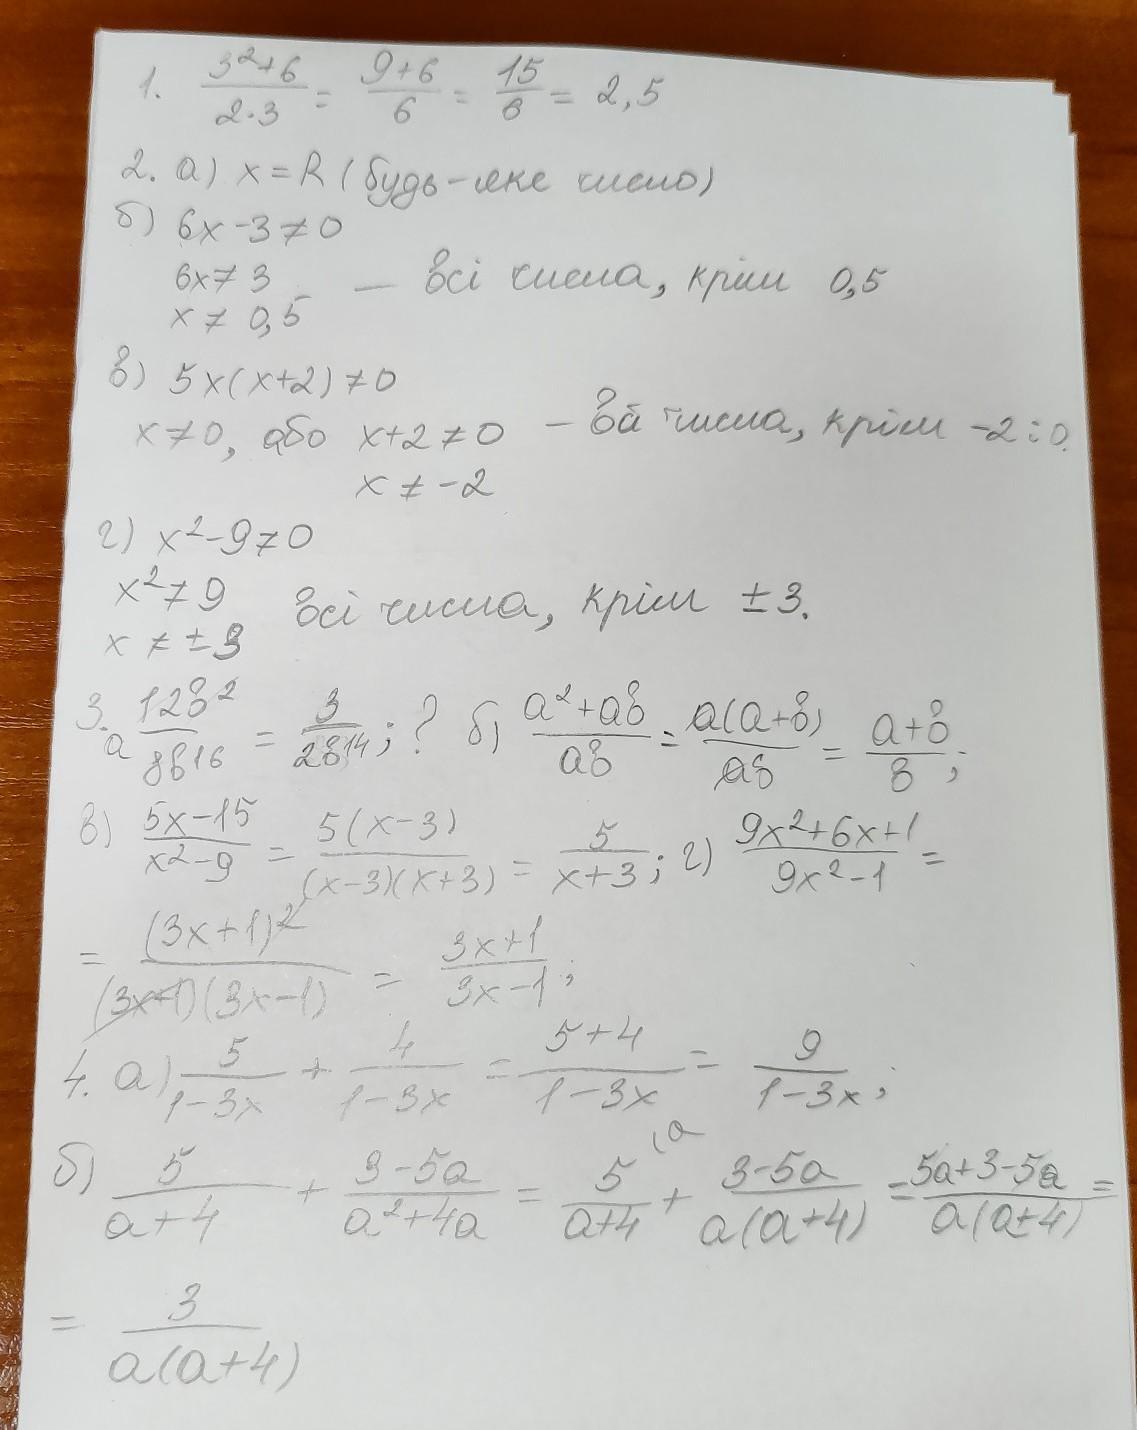 1. (3²+6)/(2·3) = (9+6)/6 = 15/6 = 2,5
2. а) x = R (будь-яке число)
б) 6x-3≠0
6x≠3 — всі числа, крім 0,5
x ≠ 0,5
в) 5x(x+2)≠0
x≠0, або x+2≠0 — всі числа, крім -2 і 0.
x ≠ -2
г) x²-9≠0
x²≠9 всі числа, крім ±3.
x ≠ ±3
3. а 12в²/8в16 = 3/2в¹⁴; ? б) (a²+aв)/aв = a(a+в)/aв = (a+в)/в;
в) (5x-15)/(x²-9) = 5(x-3)/(x-3)(x+3) = 5/(x+3); г) (9x²+6x+1)/(9x²-1) =
= (3x+1)²/(3x+1)(3x-1) = (3x+1)/(3x-1);
4. а) 5/(1-3x) + 4/(1-3x) = (5+4)/(1-3x) = 9/(1-3x);
б) 5/(a+4) + (3-5a)/(a²+4a) = 5(a/(a+4) + (3-5a)/a(a+4) = (5a+3-5a)/a(a+4) =
= 3/a(a+4)